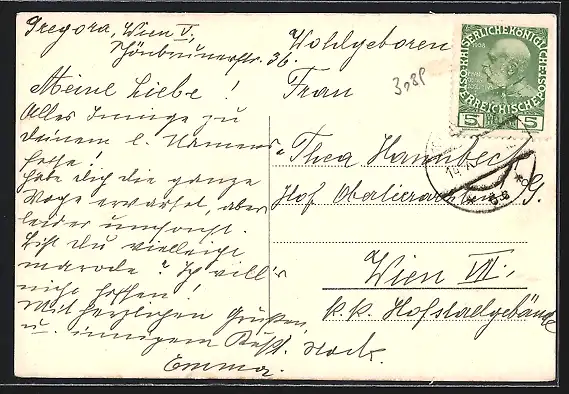 Gregora, Wien V,
Schönbrunnerstr. 36.
Meine Liebe!
Alles Innige zu
deinem l. Namens
feste!
habe dich die ganze
Woge erwartet, aber
leider umsonst.
bist du vielleicht
marode? Ich will's
nicht hoffen!
Mit herzlichen Grüßen
u. innigem Kuß.
Emma.
3089
Wohlgeboren
Frau
Thea
Hof
Wien VII.
k. k. Hofstallgebäude
KAISERLICHE KÖNIGLICHE
1908
ÖSTERREICHISCHE POST
5 HELLER 5